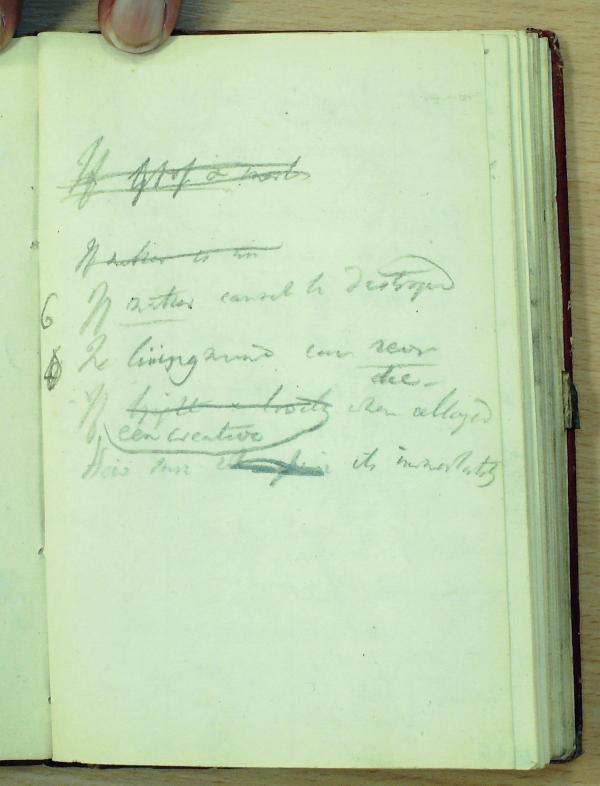 If
If matter is
6 If matter cannot be destroyed
The living mind can never
die -
If when alloyed
een creative
How sure its immortality